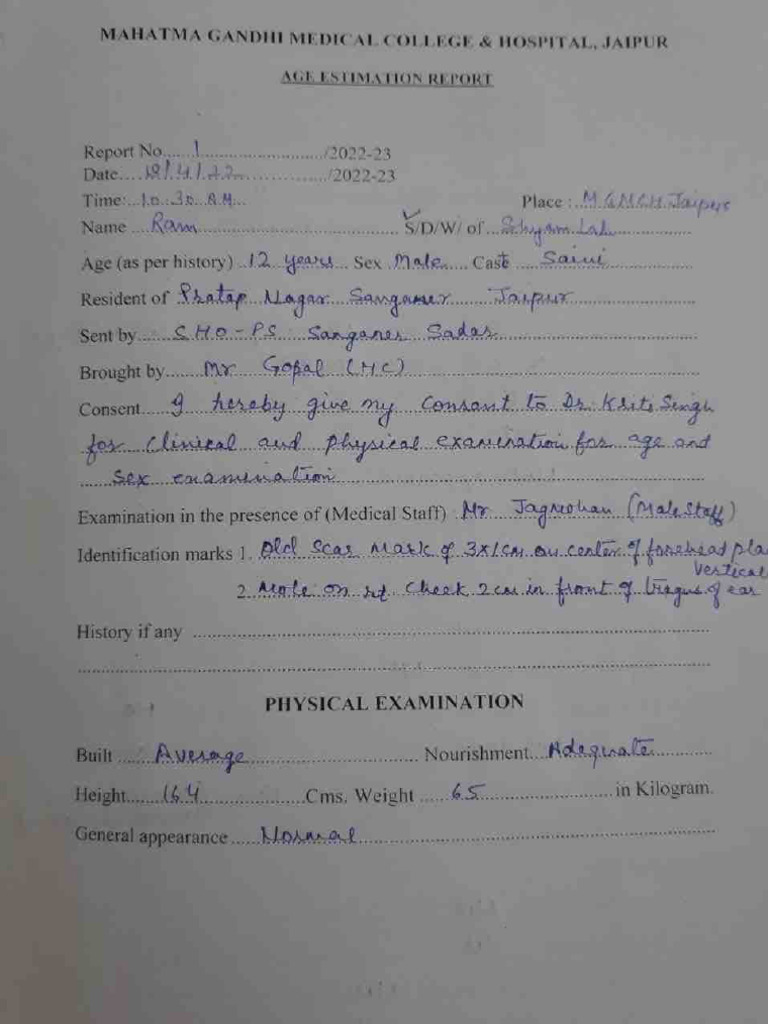 MAHATMA GANDHI MEDICAL COLLEGE & HOSPITAL, JAIPUR
AGE ESTIMATION REPORT
Report No......1............................/2022-23
Date....18/4/22................../2022-23
Time:..10..30..A.M... Place : ..M G M C H. Jaipur
Name ....Ram.............................................. S/D/W/ of ...Shyam Lal..........
Age (as per history) .12 years... Sex .Male.... Cast ......Saini..................
Resident of Pratap Nagar Sanganer Jaipur
Sent by......S.H.O - P.S. Sanganer Sadar
Brought by.......Mr Gopal (HC)
Consent....I hereby give my consent to Dr. Kriti Singh
for clinical and physical examination for age and
sex examination
Examination in the presence of (Medical Staff) .Mr Jagmohan (Male Staff)
Identification marks 1. Old scar mark of 3x1cm on center of forehead pla
vertical
2. Mole on rt cheek 2 cm in front of tragus of ear
History if any ..........................................................................................
PHYSICAL EXAMINATION
Built ......Average............................... Nourishment....Adequate............
Height......164..................Cms. Weight ......65.......................in Kilogram.
General appearance ......Normal..................................................................